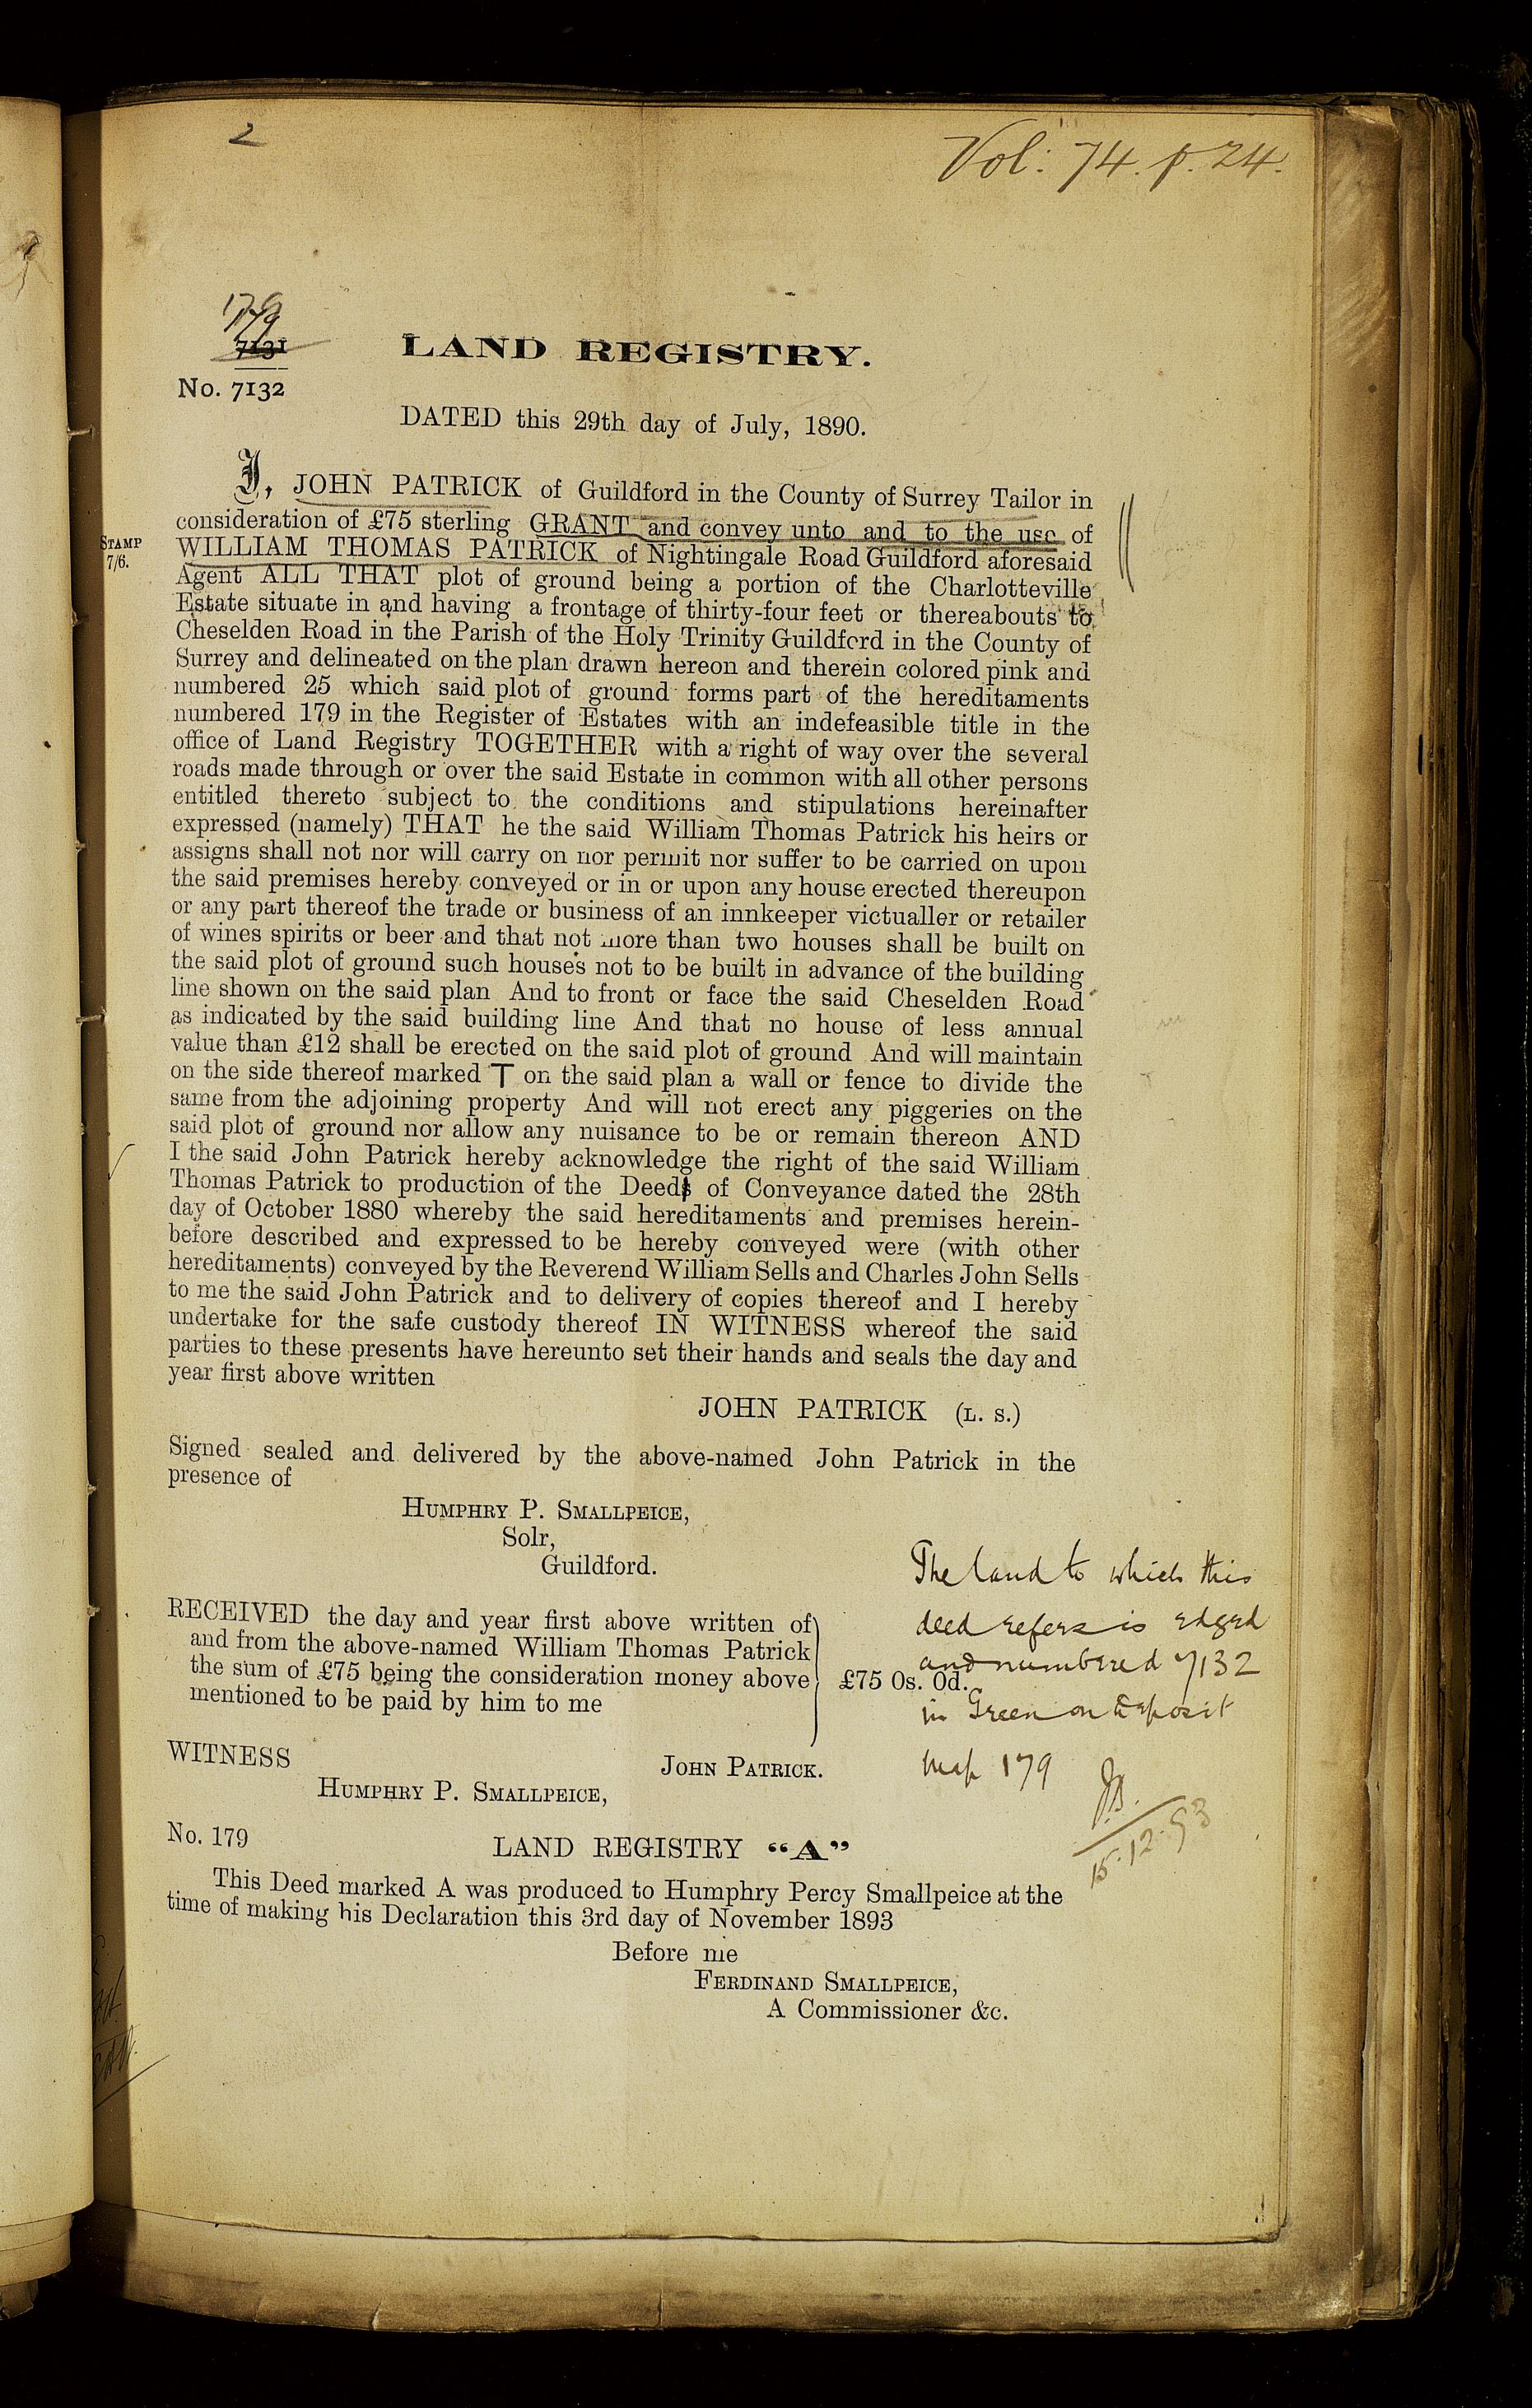 2
Vol: 74. p. 24.
179
7131
No. 7132
LAND REGISTRY.
DATED this 29th day of July, 1890.
I, JOHN PATRICK of Guildford in the County of Surrey Tailor in
consideration of £75 sterling GRANT and convey unto and to the use of
STAMP
7/6.
WILLIAM THOMAS PATRICK of Nightingale Road Guildford aforesaid
Agent ALL THAT plot of ground being a portion of the Charlotteville
Estate situate in and having a frontage of thirty-four feet or thereabouts to
Cheselden Road in the Parish of the Holy Trinity Guildford in the County of
Surrey and delineated on the plan drawn hereon and therein colored pink and
numbered 25 which said plot of ground forms part of the hereditaments
numbered 179 in the Register of Estates with an indefeasible title in the
office of Land Registry TOGETHER with a right of way over the several
roads made through or over the said Estate in common with all other persons
entitled thereto subject to the conditions and stipulations hereinafter
expressed (namely) THAT he the said William Thomas Patrick his heirs or
assigns shall not nor will carry on nor permit nor suffer to be carried on upon
the said premises hereby conveyed or in or upon any house erected thereupon
or any part thereof the trade or business of an innkeeper victualler or retailer
of wines spirits or beer and that not more than two houses shall be built on
the said plot of ground such houses not to be built in advance of the building
line shown on the said plan And to front or face the said Cheselden Road
as indicated by the said building line And that no house of less annual
value than £12 shall be erected on the said plot of ground And will maintain
on the side thereof marked T on the said plan a wall or fence to divide the
same from the adjoining property And will not erect any piggeries on the
said plot of ground nor allow any nuisance to be or remain thereon AND
I the said John Patrick hereby acknowledge the right of the said William
Thomas Patrick to production of the Deeds of Conveyance dated the 28th
day of October 1880 whereby the said hereditaments and premises herein-
before described and expressed to be hereby conveyed were (with other
hereditaments) conveyed by the Reverend William Sells and Charles John Sells
to me the said John Patrick and to delivery of copies thereof and I hereby
undertake for the safe custody thereof IN WITNESS whereof the said
parties to these presents have hereunto set their hands and seals the day and
year first above written
JOHN PATRICK (L. S.)
Signed sealed and delivered by the above-named John Patrick in the
presence of
HUMPHRY P. SMALLPEICE,
Solr,
Guildford.
RECEIVED the day and year first above written of
and from the above-named William Thomas Patrick
the sum of £75 being the consideration money above
mentioned to be paid by him to me
£75 0s. 0d.
The land to which this
deed refers is edged
and numbered 7132
in Green on deposit
map 179
J.B.
15.12.93
WITNESS
JOHN PATRICK.
HUMPHRY P. SMALLPEICE,
No. 179
LAND REGISTRY "A"
This Deed marked A was produced to Humphry Percy Smallpeice at the
time of making his Declaration this 3rd day of November 1893
Before me
FERDINAND SMALLPEICE,
A Commissioner &c.